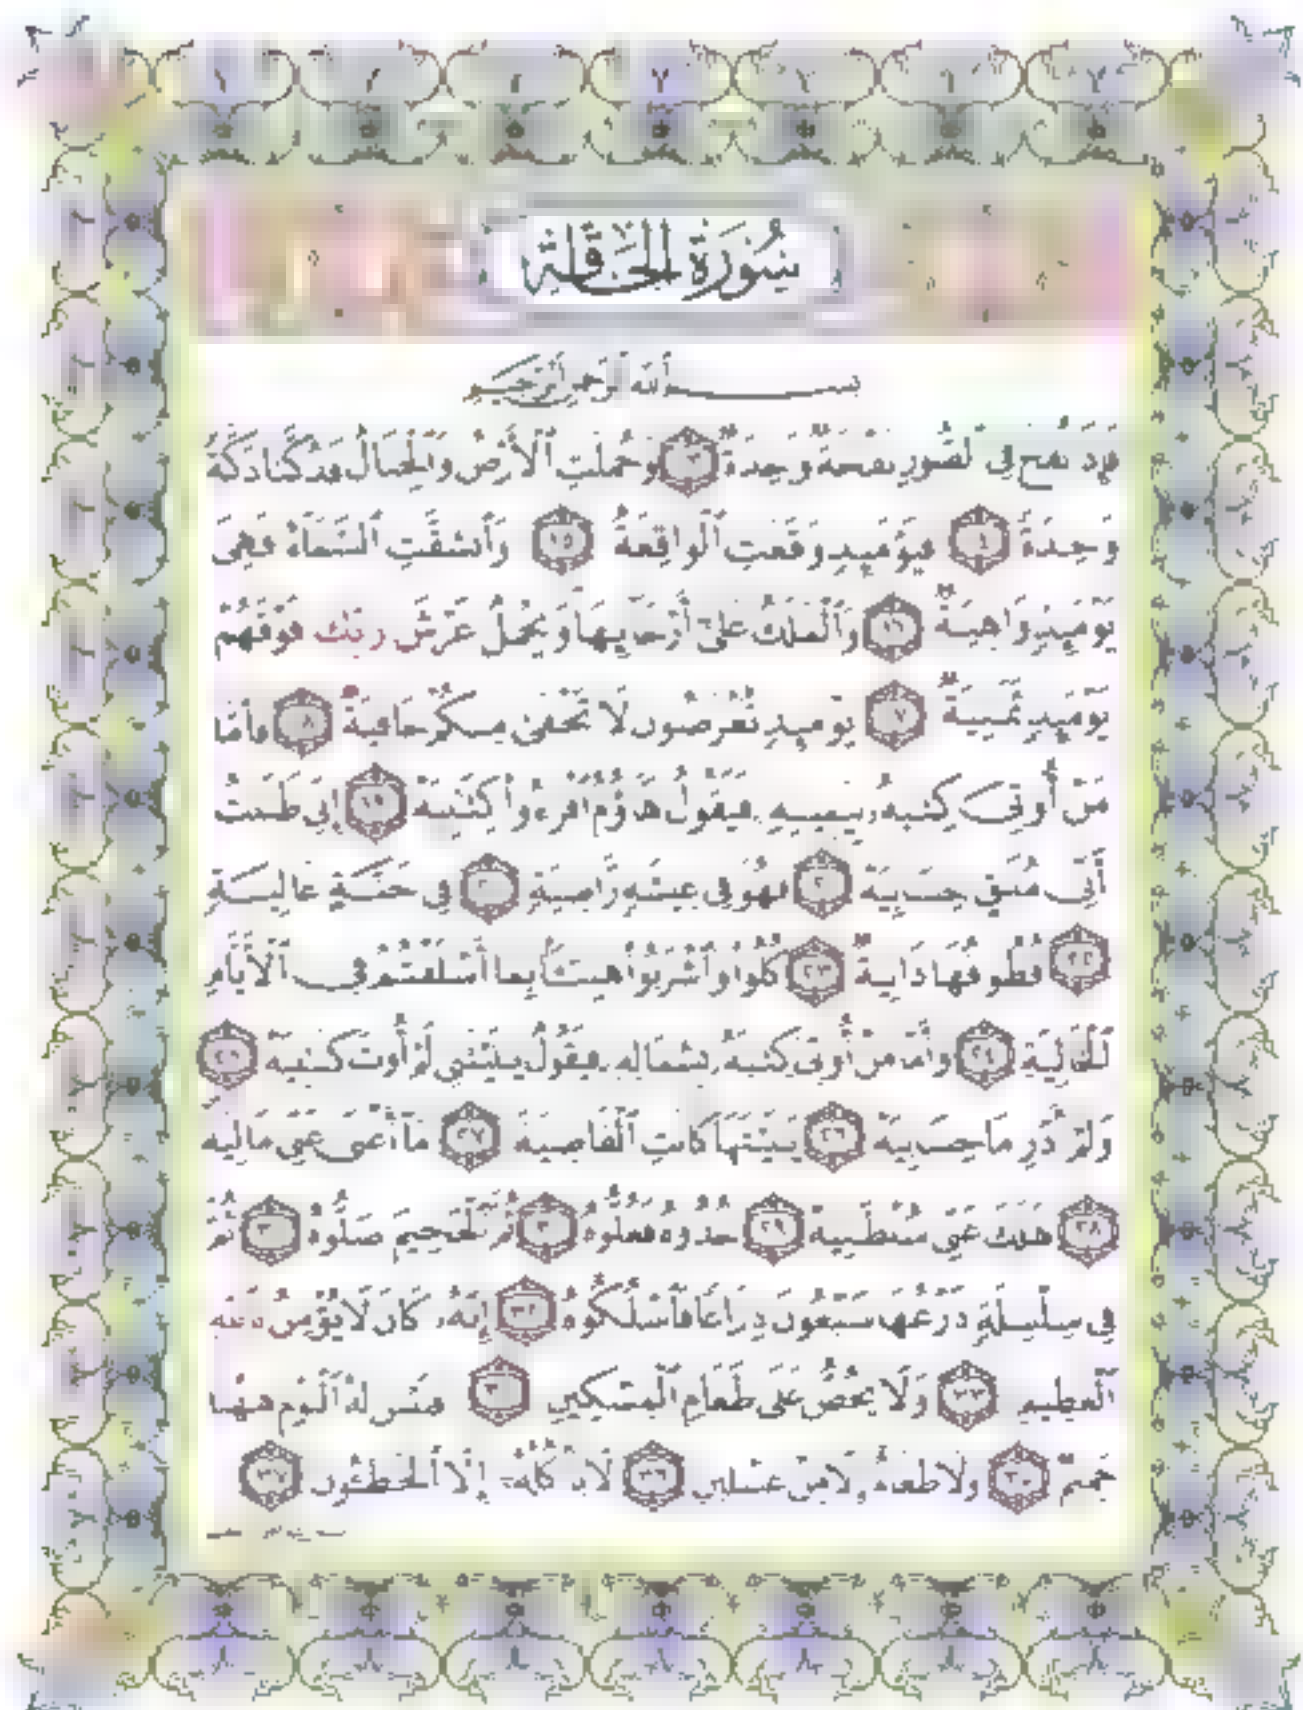 سُورَةُ الْحَاقَّةِ
بسم الله الرحمن الرحيم
فَإِذَا نُفِخَ فِي الصُّورِ نَفْخَةٌ وَاحِدَةٌ ﴿١٣﴾ وَحُمِلَتِ الْأَرْضُ وَالْجِبَالُ فَدُكَّتَا دَكَّةً
وَاحِدَةً ﴿١٤﴾ فَيَوْمَئِذٍ وَقَعَتِ الْوَاقِعَةُ ﴿١٥﴾ وَانشَقَّتِ السَّمَاءُ فَهِيَ
يَوْمَئِذٍ وَاهِيَةٌ ﴿١٦﴾ وَالْمَلَكُ عَلَىٰ أَرْجَائِهَا وَيَحْمِلُ عَرْشَ رَبِّكَ فَوْقَهُمْ
يَوْمَئِذٍ ثَمَانِيَةٌ ﴿١٧﴾ يَوْمَئِذٍ تُعْرَضُونَ لَا تَخْفَىٰ مِنكُمْ خَافِيَةٌ ﴿١٨﴾ فَأَمَّا
مَنْ أُوتِيَ كِتَابَهُ بِيَمِينِهِ فَيَقُولُ هَاؤُمُ اقْرَءُوا كِتَابِيَهْ ﴿١٩﴾ إِنِّي ظَنَنتُ
أَنِّي مُلَاقٍ حِسَابِيَهْ ﴿٢٠﴾ فَهُوَ فِي عِيشَةٍ رَّاضِيَةٍ ﴿٢١﴾ فِي جَنَّةٍ عَالِيَةٍ
﴿٢٢﴾ قُطُوفُهَا دَانِيَةٌ ﴿٢٣﴾ كُلُوا وَاشْرَبُوا هَنِيئًا بِمَا أَسْلَفْتُمْ فِي الْأَيَّامِ
الْخَالِيَةِ ﴿٢٤﴾ وَأَمَّا مَنْ أُوتِيَ كِتَابَهُ بِشِمَالِهِ فَيَقُولُ يَا لَيْتَنِي لَمْ أُوتَ كِتَابِيَهْ ﴿٢٥﴾
وَلَمْ أَدْرِ مَا حِسَابِيَهْ ﴿٢٦﴾ يَا لَيْتَهَا كَانَتِ الْقَاضِيَةَ ﴿٢٧﴾ مَا أَغْنَىٰ عَنِّي مَالِيَهْ
﴿٢٨﴾ هَلَكَ عَنِّي سُلْطَانِيَهْ ﴿٢٩﴾ خُذُوهُ فَغُلُّوهُ ﴿٣٠﴾ ثُمَّ الْجَحِيمَ صَلُّوهُ ﴿٣١﴾ ثُمَّ
فِي سِلْسِلَةٍ ذَرْعُهَا سَبْعُونَ ذِرَاعًا فَاسْلُكُوهُ ﴿٣٢﴾ إِنَّهُ كَانَ لَا يُؤْمِنُ بِاللَّهِ
الْعَظِيمِ ﴿٣٣﴾ وَلَا يَحُضُّ عَلَىٰ طَعَامِ الْمِسْكِينِ ﴿٣٤﴾ فَلَيْسَ لَهُ الْيَوْمَ هَاهُنَا
حَمِيمٌ ﴿٣٥﴾ وَلَا طَعَامٌ إِلَّا مِنْ غِسْلِينٍ ﴿٣٦﴾ لَّا يَأْكُلُهُ إِلَّا الْخَاطِئُونَ ﴿٣٧﴾